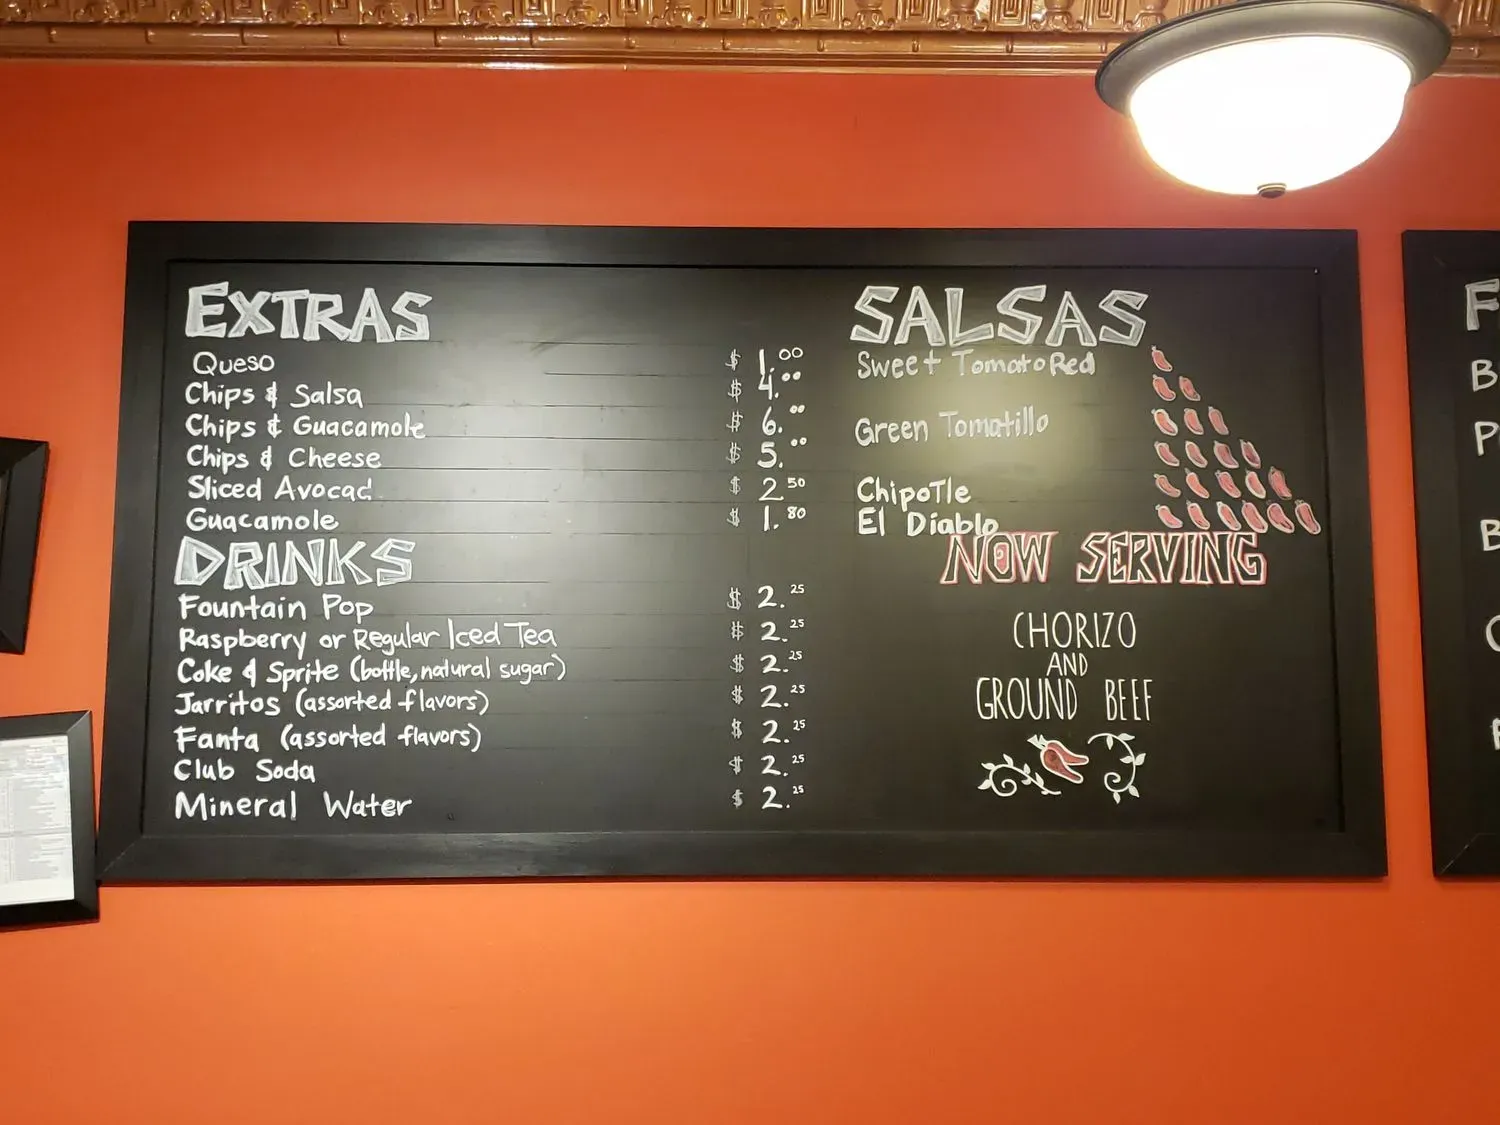 EXTRAS
Queso $ 1.00
Chips & Salsa $ 4.00
Chips & Guacamole $ 6.00
Chips & Cheese $ 5.00
Sliced Avocad $ 2 50
Guacamole $ 1.80
DRINKS
Fountain Pop $ 2.25
Raspberry or Regular Iced Tea $ 2.25
Coke & Sprite (bottle, natural sugar) $ 2.25
Jarritos (assorted flavors) $ 2.25
Fanta (assorted flavors) $ 2.25
Club Soda $ 2.25
Mineral Water $ 2.25
SALSAS
Sweet Tomato Red
Green Tomatillo
Chipotle
El Diablo
NOW SERVING
CHORIZO
AND
GROUND BEEF